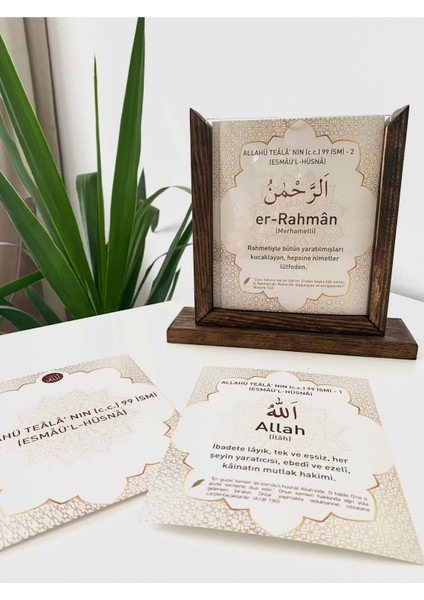 ALLAHÜ TEÂLÂ' NIN (c.c.) 99 İSMİ - 2
(ESMÂÜ'L-HÜSNÂ)
اَلرَّحْمٰنُ
er-Rahmân
(Merhametli)
Rahmetiyle bütün yaratılmışları
kucaklayan, hepsine nimetler
lütfeden.
AHÜ TEÂLÂ' NIN (c.c.) 99 İSMİ
(ESMÂÜ'L-HÜSNÂ)
ALLAHÜ TEÂLÂ' NIN (c.c.) 99 İSMİ - 1
(ESMÂÜ'L-HÜSNÂ)
اَللّٰهُ
Allah
(İlâh)
İbadete lâyık, tek ve eşsiz, her
şeyin yaratıcısı, ebedî ve ezelî,
kâinatın mutlak hakimi.